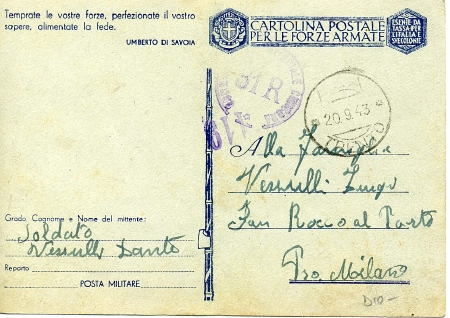 Temprate le vostre forze, perfezionate il vostro
sapere, alimentate la fede.
UMBERTO DI SAVOIA
CARTOLINA POSTALE
PER LE FORZE ARMATE
ESENTE DA
TASSA PER
L'ITALIA E
81R
20.9.43
TRENTO
Alla Famiglia
San Rocco al Porto
Pro. Milano
Grado Cognome e Nome del mittente:
Soldato
Reparto
POSTA MILITARE